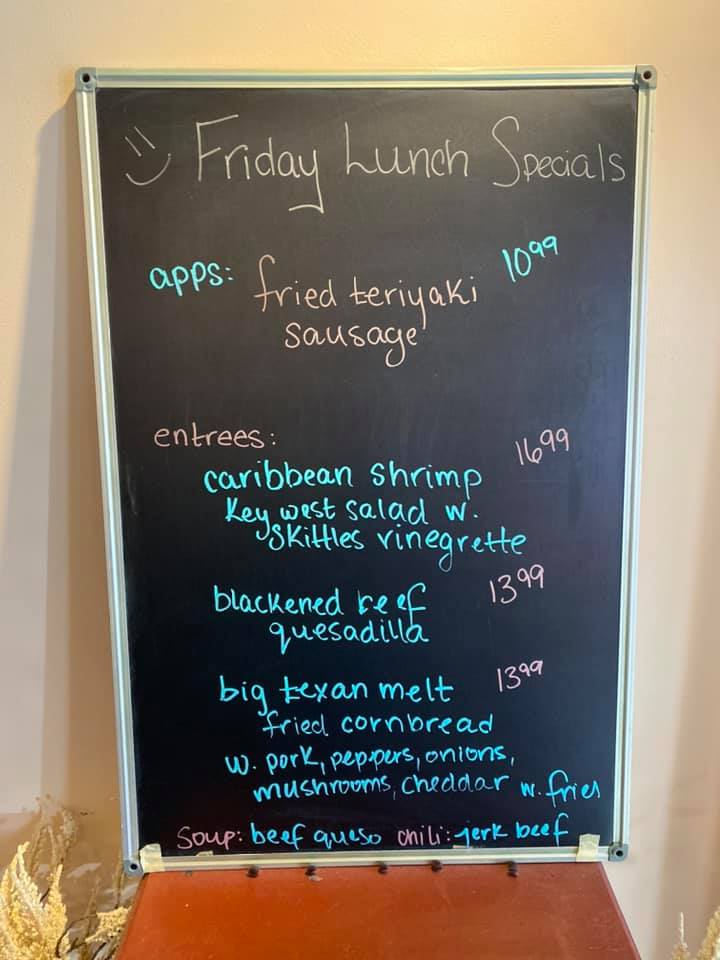 Friday Lunch Specials
apps: fried teriyaki 10⁹⁹
sausage
entrees: 16⁹⁹
caribbean shrimp
Key west salad w.
Skittles vinegrette
blackened beef 13⁹⁹
quesadilla
big texan melt 13⁹⁹
fried cornbread
w. pork, peppers, onions,
mushrooms, cheddar w. fries
Soup: beef queso chili: jerk beef